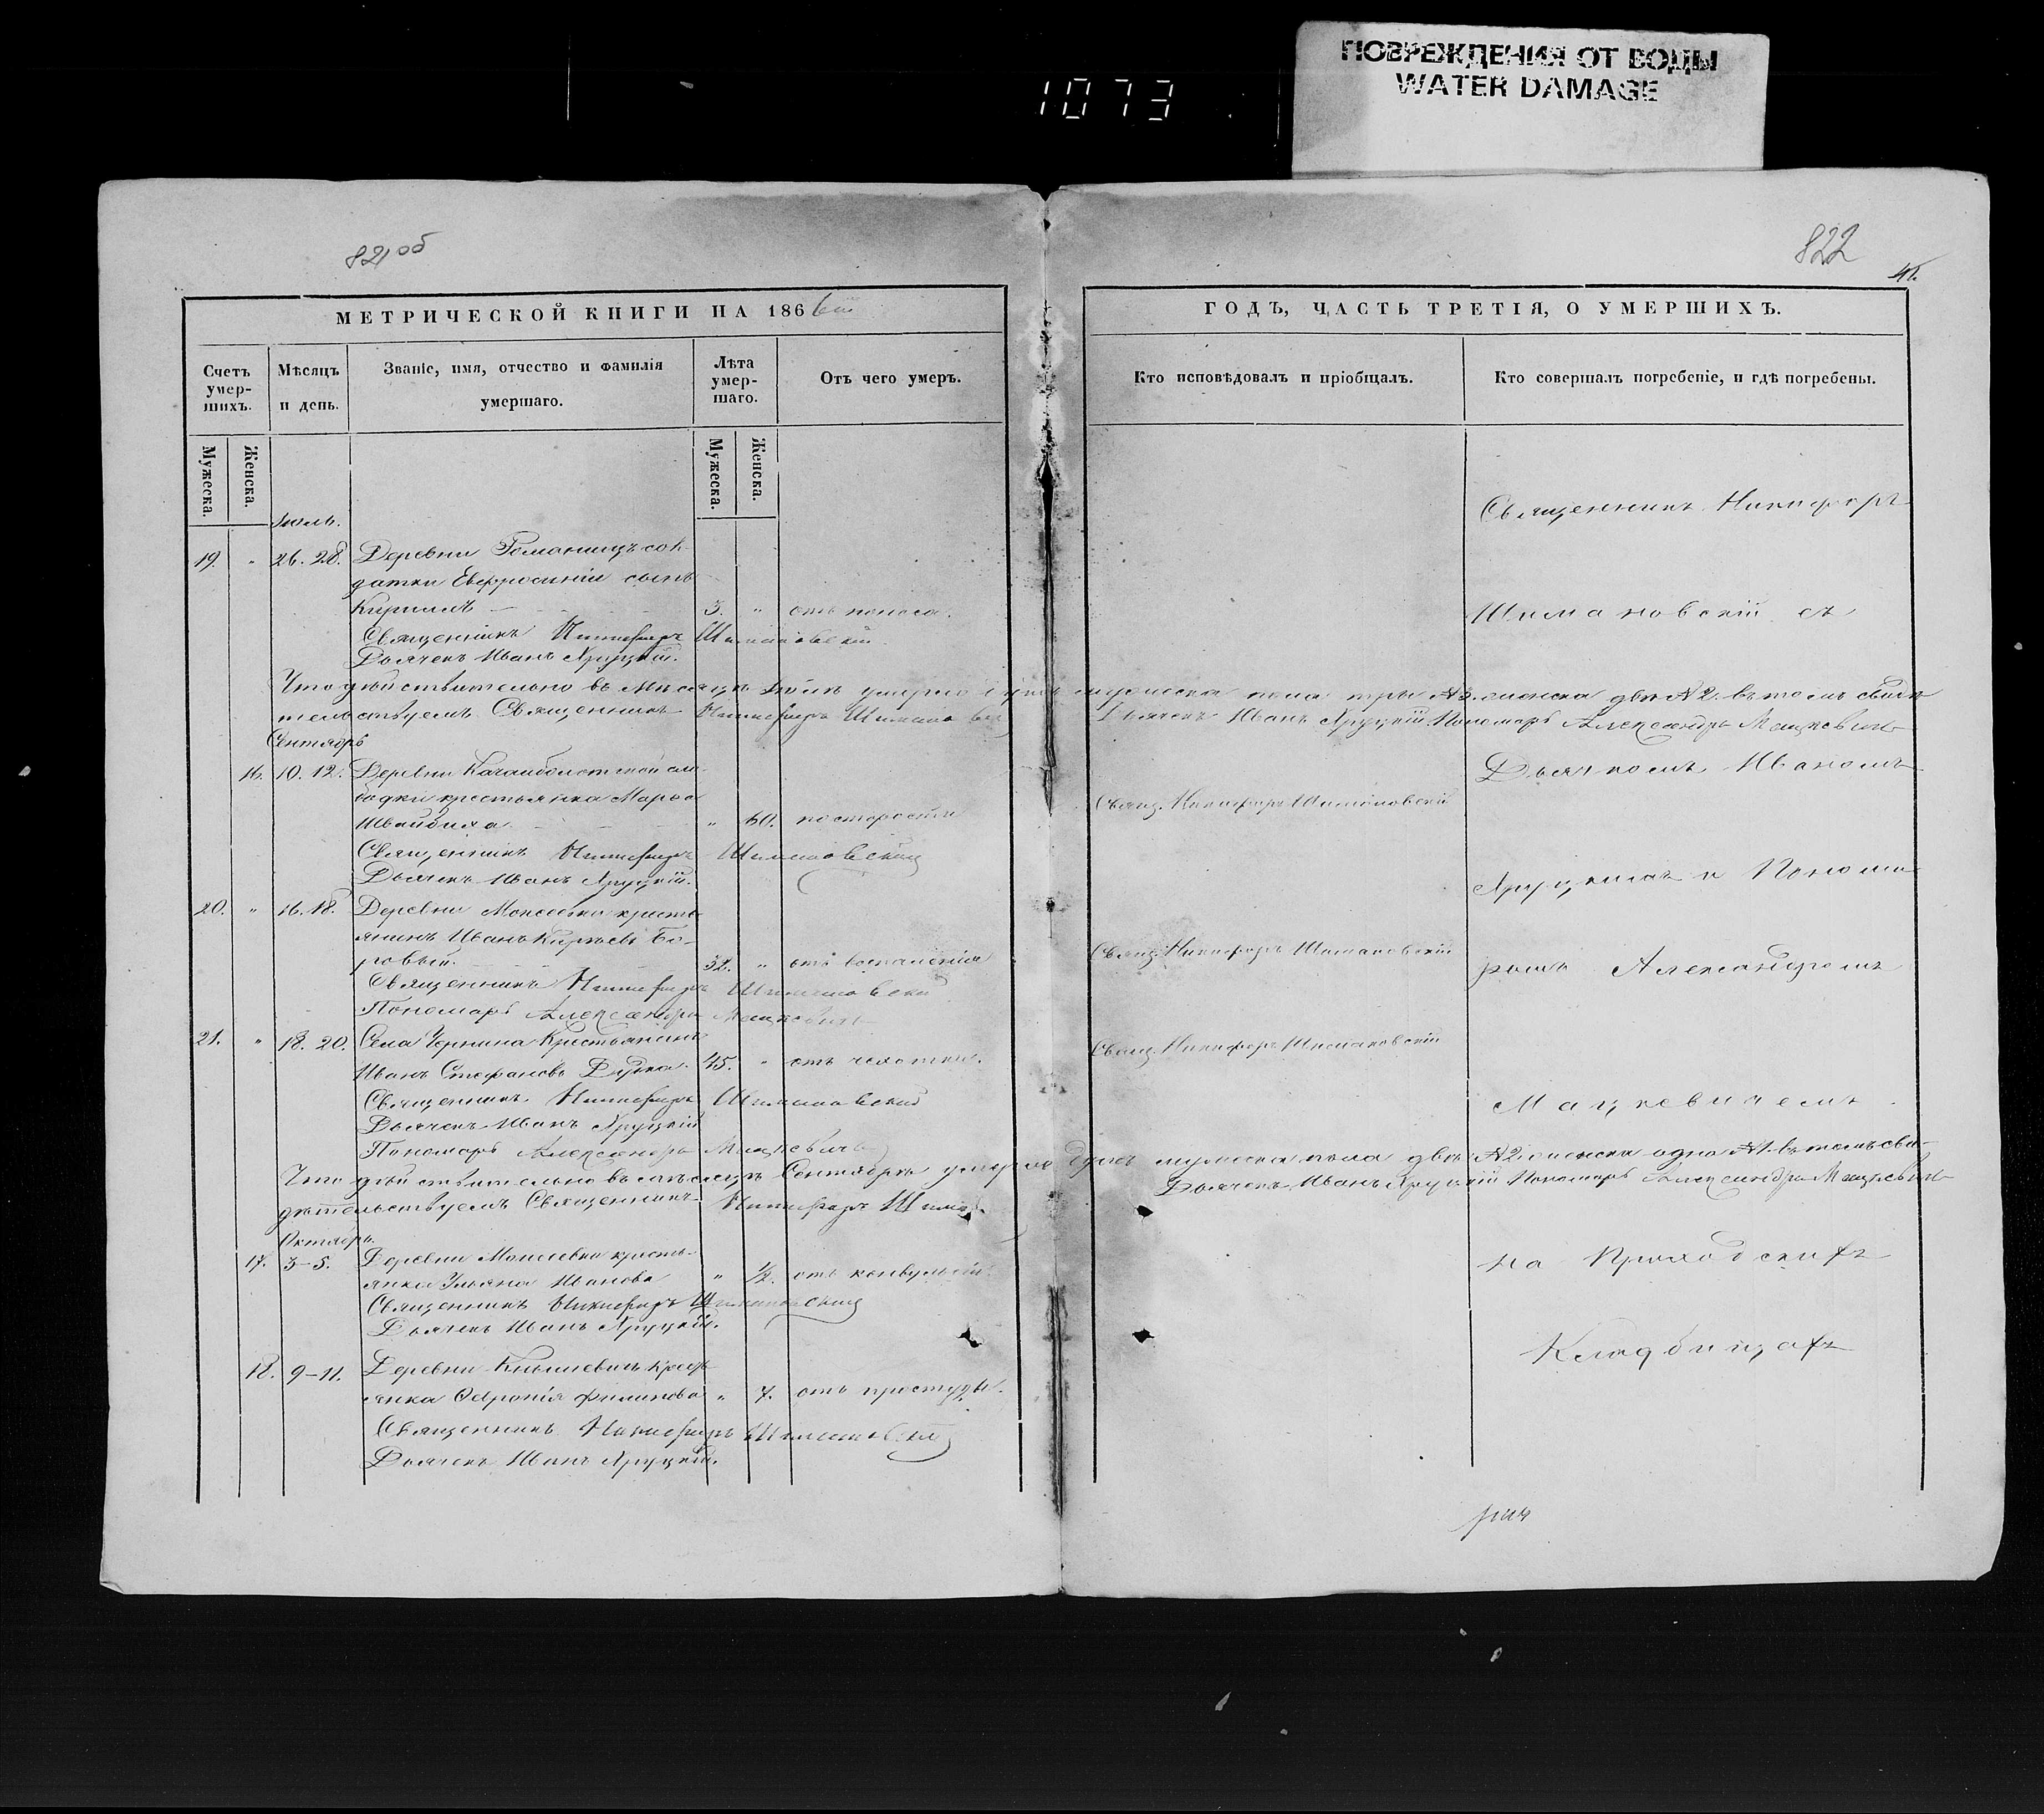 ПОВРЕЖДЕНИЯ ОТ ВОДЫ
WATER DAMAGE
1073
821 об
822
41.
МЕТРИЧЕСКОЙ КНИГИ НА 1866
Счетъ умер-шихъ.
Мѣсяцъ и день.
Званіе, имя, отчество и фамилія умершаго.
Лѣта умер-шаго.
Отъ чего умеръ.
Мужеска.
Женска.
Мужеска.
Женска.
Іюль.
19. " 26. 28. Деревни сол-
датки Евфросиніи сынъ
Кириллъ 3. " отъ поноса.
Священникъ Никифоръ Шимановскій
Дьячекъ Иванъ Хруцкій.
Что дѣйствительно въ Мѣсяцѣ Іюлѣ умерло душъ мужеска пола три №3. женска двѣ №2. въ томъ свидѣ-
тельствуемъ Священникъ Никифоръ Дьячекъ Иванъ Хруцкій Пономарь Александръ Мацкевичъ
Сентябрь
16. 10. 12. Деревни сло-
бодки крестьянка Марья
" 60. по старости
Священникъ Никифоръ Шимановскій
Дьячекъ Иванъ Хруцкій.
20. " 16. 18. Деревни Моисеевки кресть-
янинъ Иванъ Бо-
ровый 32. " отъ воспаленія
Священникъ Никифоръ Шимановскій
Пономарь Александръ Мацкевичъ
21. " 18. 20. Села Чернина Крестьянинъ
Иванъ Стефановъ Дудка 45. " отъ чахотки.
Священникъ Никифоръ Шимановскій
Дьячекъ Иванъ Хруцкій
Пономарь Александръ Мацкевичъ
Что дѣйствительно въ мѣсяцѣ Сентябрѣ умерло душъ мужеска пола двѣ №2 женска одна №1. въ томъ сви-
дѣтельствуемъ Священникъ Никифоръ Дьячекъ Иванъ Хруцкій Пономарь Александръ Мацкевичъ
Октябрь.
17. 3-5. Деревни Моисеевки кресть-
янка Ульяна Иванова " 1/2. отъ конвульсій.
Священникъ Никифоръ Шимановскій
Дьячекъ Иванъ Хруцкій.
18. 9-11. Деревни крест-
янка Филипова " 7. отъ простуды.
Священникъ Никифоръ Шимановскій
Дьячекъ Иванъ Хруцкій.
ГОДЪ, ЧАСТЬ ТРЕТІЯ, О УМЕРШИХЪ.
Кто исповѣдовалъ и пріобщалъ.
Кто совершалъ погребеніе, и гдѣ погребены.
Свящ. Никифоръ Шимановскій
Свящ. Никифоръ Шимановскій
Свящ. Никифоръ Шимановскій
Священникъ Никифоръ
Шимановскій съ
Дьячкомъ Иваномъ
Хруцкимъ и Понома-
ремъ Александромъ
Мацкевичемъ
на Приходскихъ
Кладбищахъ